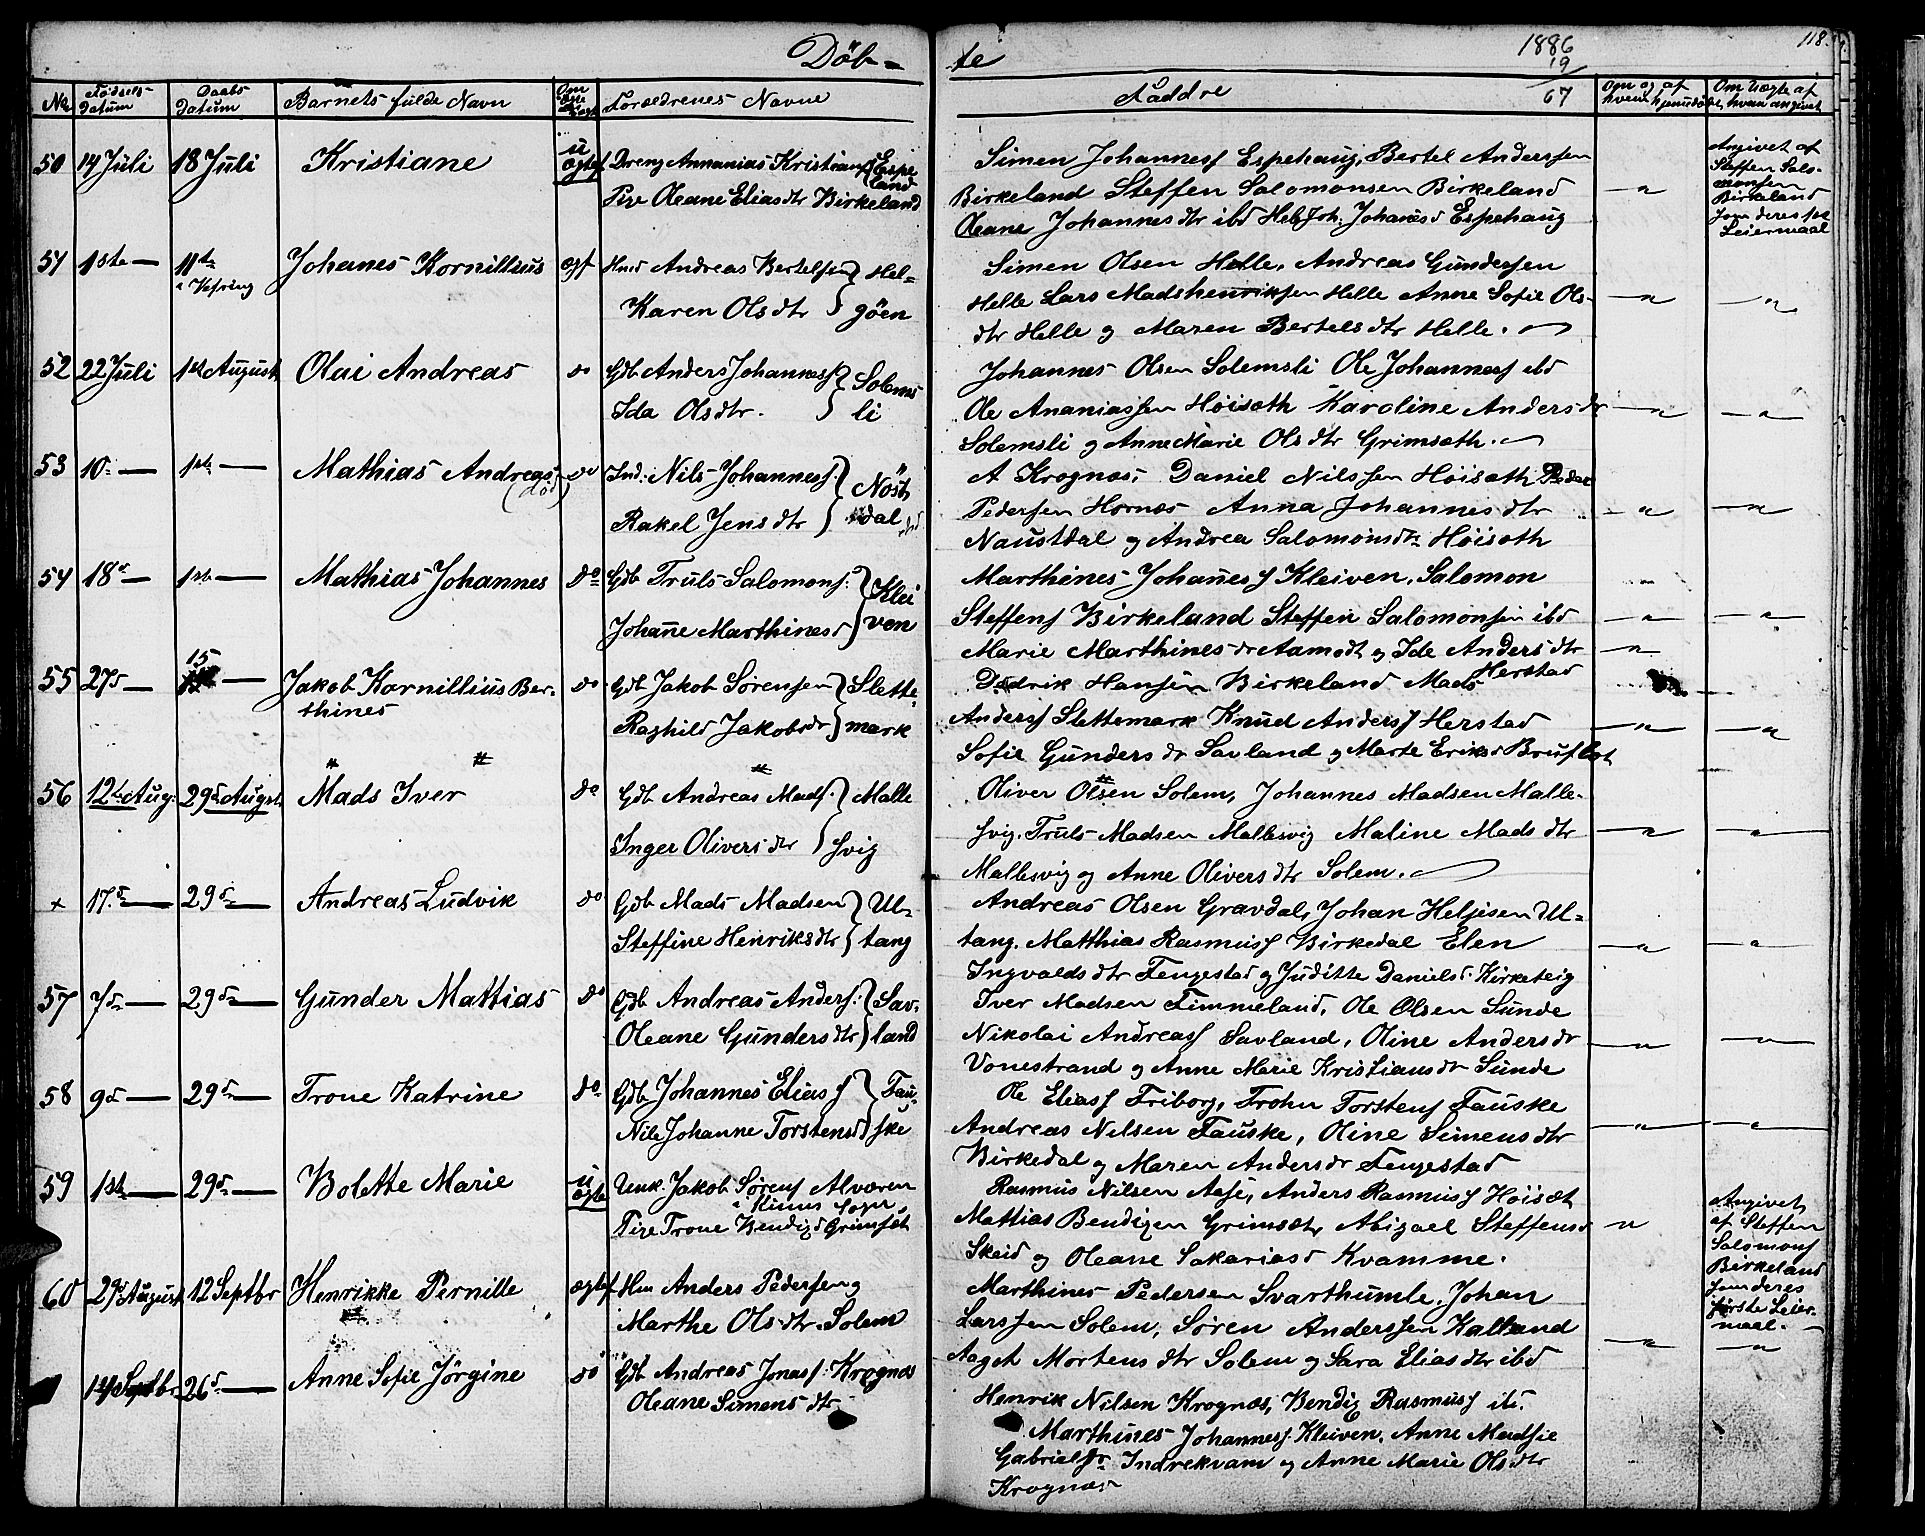 Döb-te 1886 118.
19/67
No Födsels-Datum Daabs Datum Barnets fulde Navn Om Forældrenes Navne Faddre Om og af hvem hjemmedøbt Om Uægte af hvem angivet
50 14 Juli 18 Juli Kristiane u ægtef Dreng Annanias Kristians Espeland
Pige Oleane Eliasdtr Birkeland
Simen Johanness Espehaug, Bertel Anderssen
Birkeland Steffen Salomonsen Birkeland
Oleane Johannesdtr ibd Heb. Joh. Johanesd Espehaug
Angivet af
Steffen Salo-
monsen
Birkeland
som deres
Leiermaal
51 1ste — 11te i Vefring Johanes Kornillius ægt Hmd Andreas Bertelsen Hel-
Karen Olsdtr göen
Simen Olsen Helle, Andreas Gundersen
Helle Lars Madshenriksen Helle Anne Sofie Ols-
dtr Helle og Maren Bertelsdtr Helle.
52 22 Juli 1ste August Olai Andreas do Gdb Anders Johanness Solems
Ida Olsdtr. li
Johannes Olsen Solemsli Ole Johanness ibd
Ole Ananiassen Höisæth Karoline Andersdr
Solemsli og Anne Marie Olsdtr Grimsæth.
53 10 — 1ste — Mathias Andreas (död) do Ind: Nils Johanness. Nöst
Rakel Jensdtr dal
A Krognæs, Daniel Nilssen Höisæth Peder
Pedersen Hornæs Anna Johannesdtr
Naustdal og Andrea Salomonsdtr Höisæth
54 18d — 1ste — Mathias Johannes do Gdb Truls Salomons: Klei
Johane Marthinesd ven
Marthines Johaness Kleiven, Salomon
Steffens Birkeland Steffen Salomonsen ibd
Marie Marthinesdr Aamodt og Ide Andersdtr
Herstad
55 27d — 15 — Jakob Kornillius Ber-
thines do Gdb Jakob Sørensen Slette-
Raghild Jakobsdr mark
Didrik Hansen Birkeland Mads
Anderss Slettemark Knud Anderss Herstad
Sofie Gundersdr Savland og Marte Eriksd Bruflot
56 12te Aug. 29d Augst. Mads Iver do Gdb Andreas Mads. Malle
Inger Oliversdtr svig
Oliver Olsen Solem, Johannes Madsen Malle-
svig. Truls Madsen Mallesvig Maline Madsdtr
Mallesvig og Anne Oliversdtr Solem.
x 17d — 29d — Andreas Ludvik do Gdb Mads Madsen Ul-
Steffine Henriksdtr tang
Andreas Olsen Gravdal, Johan Helgesen Ul-
tang. Matthias Rasmuss Birkedal Elen
Ingvaldsdtr Fengestad og Juditte Danielsd. Kirketeig
57 7d — 29d — Gunder Mattias do Gdb Andreas Anders: Sav-
Oleane Gundersdtr land
Iver Madsen Timmeland, Ole Olsen Sunde
Nikolai Andreass Savland, Oline Andersdr
Vonestrand og Anne Marie Kristiansdr Sunde
58 9d — 29d — Trone Katrine do Gdb Johannes Eliass Fau-
Nille Johanne Torstensd ske
Ole Eliass Friborg, Trohn Torstens Fauske
Andreas Nilsen Fauske, Oline Simensdtr
Birkedal og Maren Andersdr Fengestad
59 1ste — 29d — Bolette Marie u ægte Unk. Jakob Sørens Alværen
i Kinns Sogn,
Pige Trone Bendigsd Grimsæt
Rasmus Nilsen Aase, Anders Rasmuss Höisæt
Mattias Bendigsen Grimsæt, Abigael Steffensd
Skeid og Oleane Sakariasd Kvamme.
Angivet
af Steffen
Salomons
Birkeland
som deres
første Leier-
maal.
60 29d August 12 Septbr Henrikke Pernille ægtef Hm Anders Pedersen og
Marthe Olsdtr Solem
Marthines Pedersen Svarthumle, Johan
Larssen Solem, Sören Anderssen Kalland
Aaget Mortensdtr Solem og Sara Eliasdtr ibd
14 Septbr 26d — Anne Sofie Jörgine do Gdb Andreas Jonass: Krognæs
Oleane Simensdtr
Henrik Nilsen Krognæs, Bendig Rasmuss ib.
Marthines Johanness Kleiven, Anne Madsie
Gabrielsdr Indrekvam og Anne Marie Olsdtr
Krognæs